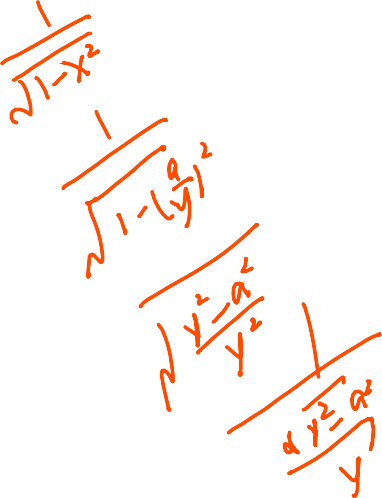 1/√(1-x²)
1/√(1-(a/y)²)
√((y²-a²)/y²)
1/(√(y²-a²)/y)